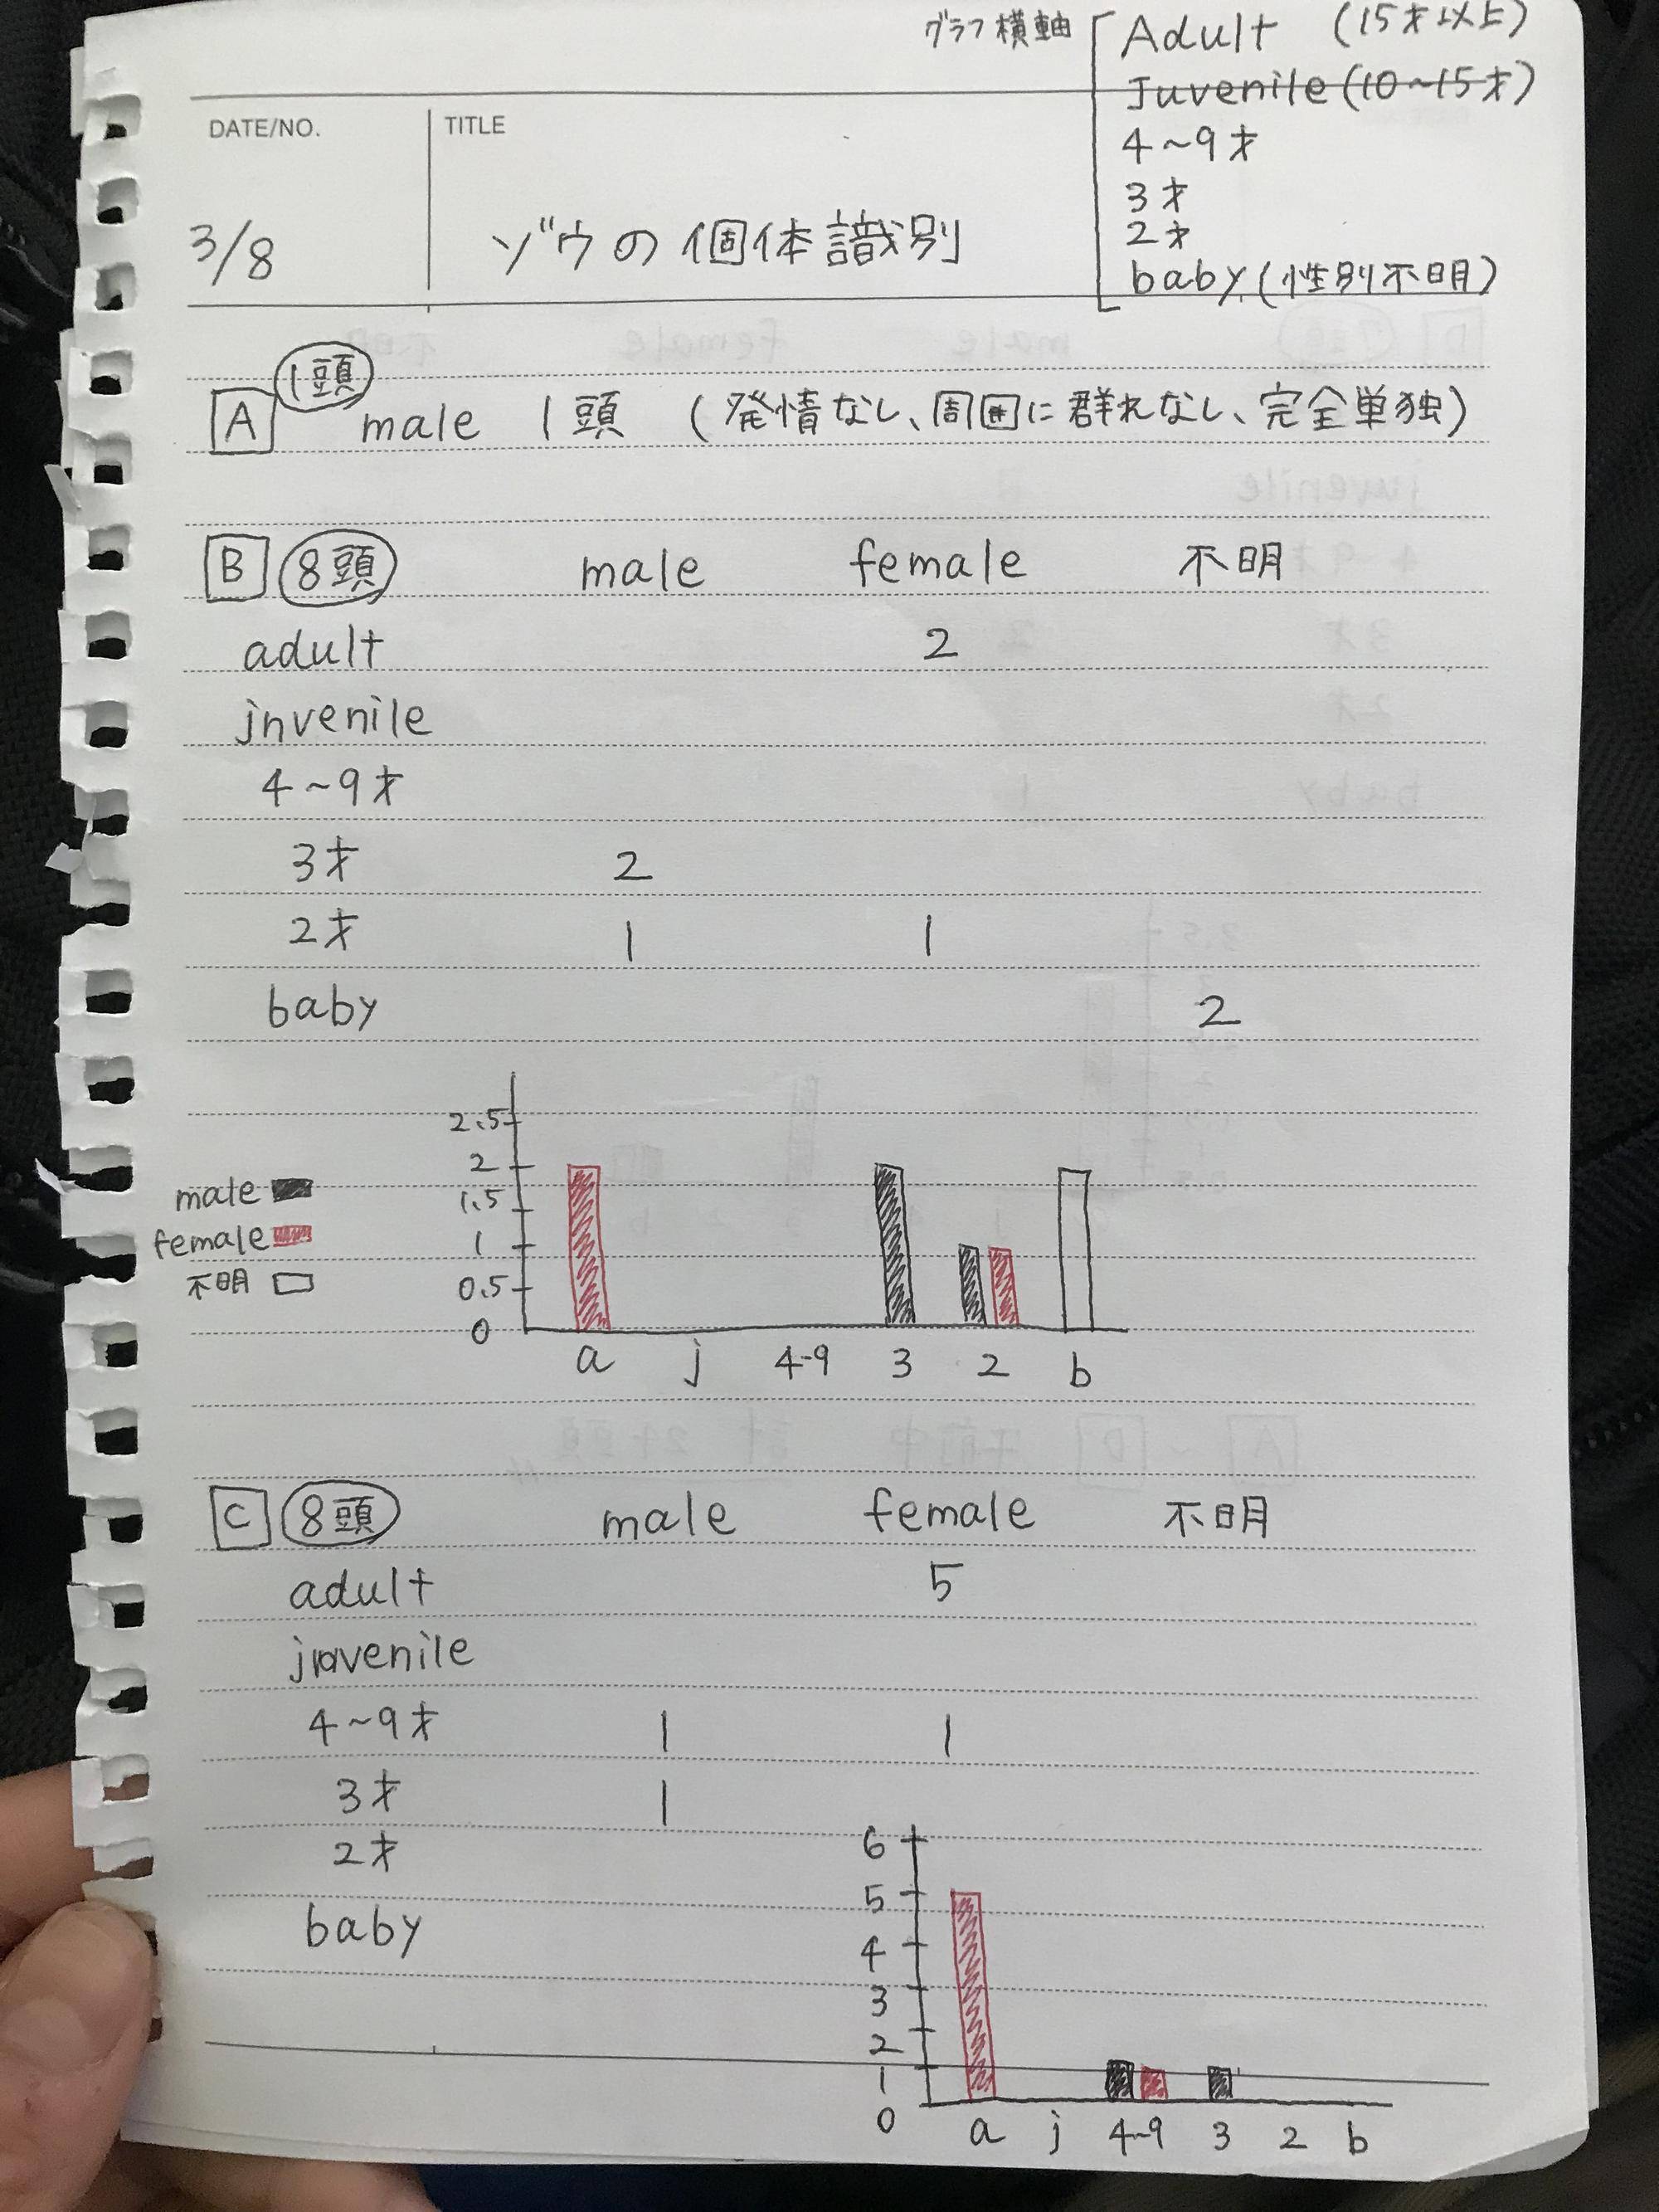 グラフ横軸 Adult (15才以上)
Juvenile (10~15才)
4~9才
3才
2才
baby (性別不明)
DATE/NO. TITLE
3/8 ゾウの個体識別
A 1頭 male 1頭 (発情なし、周囲に群れなし、完全単独)
B 8頭 male female 不明
adult 2
jnvenile
4~9才
3才 2
2才 1 1
baby 2
2.5
2
1.5
1
0.5
0
male
female
不明
a j 4-9 3 2 b
C 8頭 male female 不明
adult 5
4~9才 1 1
3才 1
2才
baby
6
5
4
3
2
1
0
a j 4~9 3 2 b